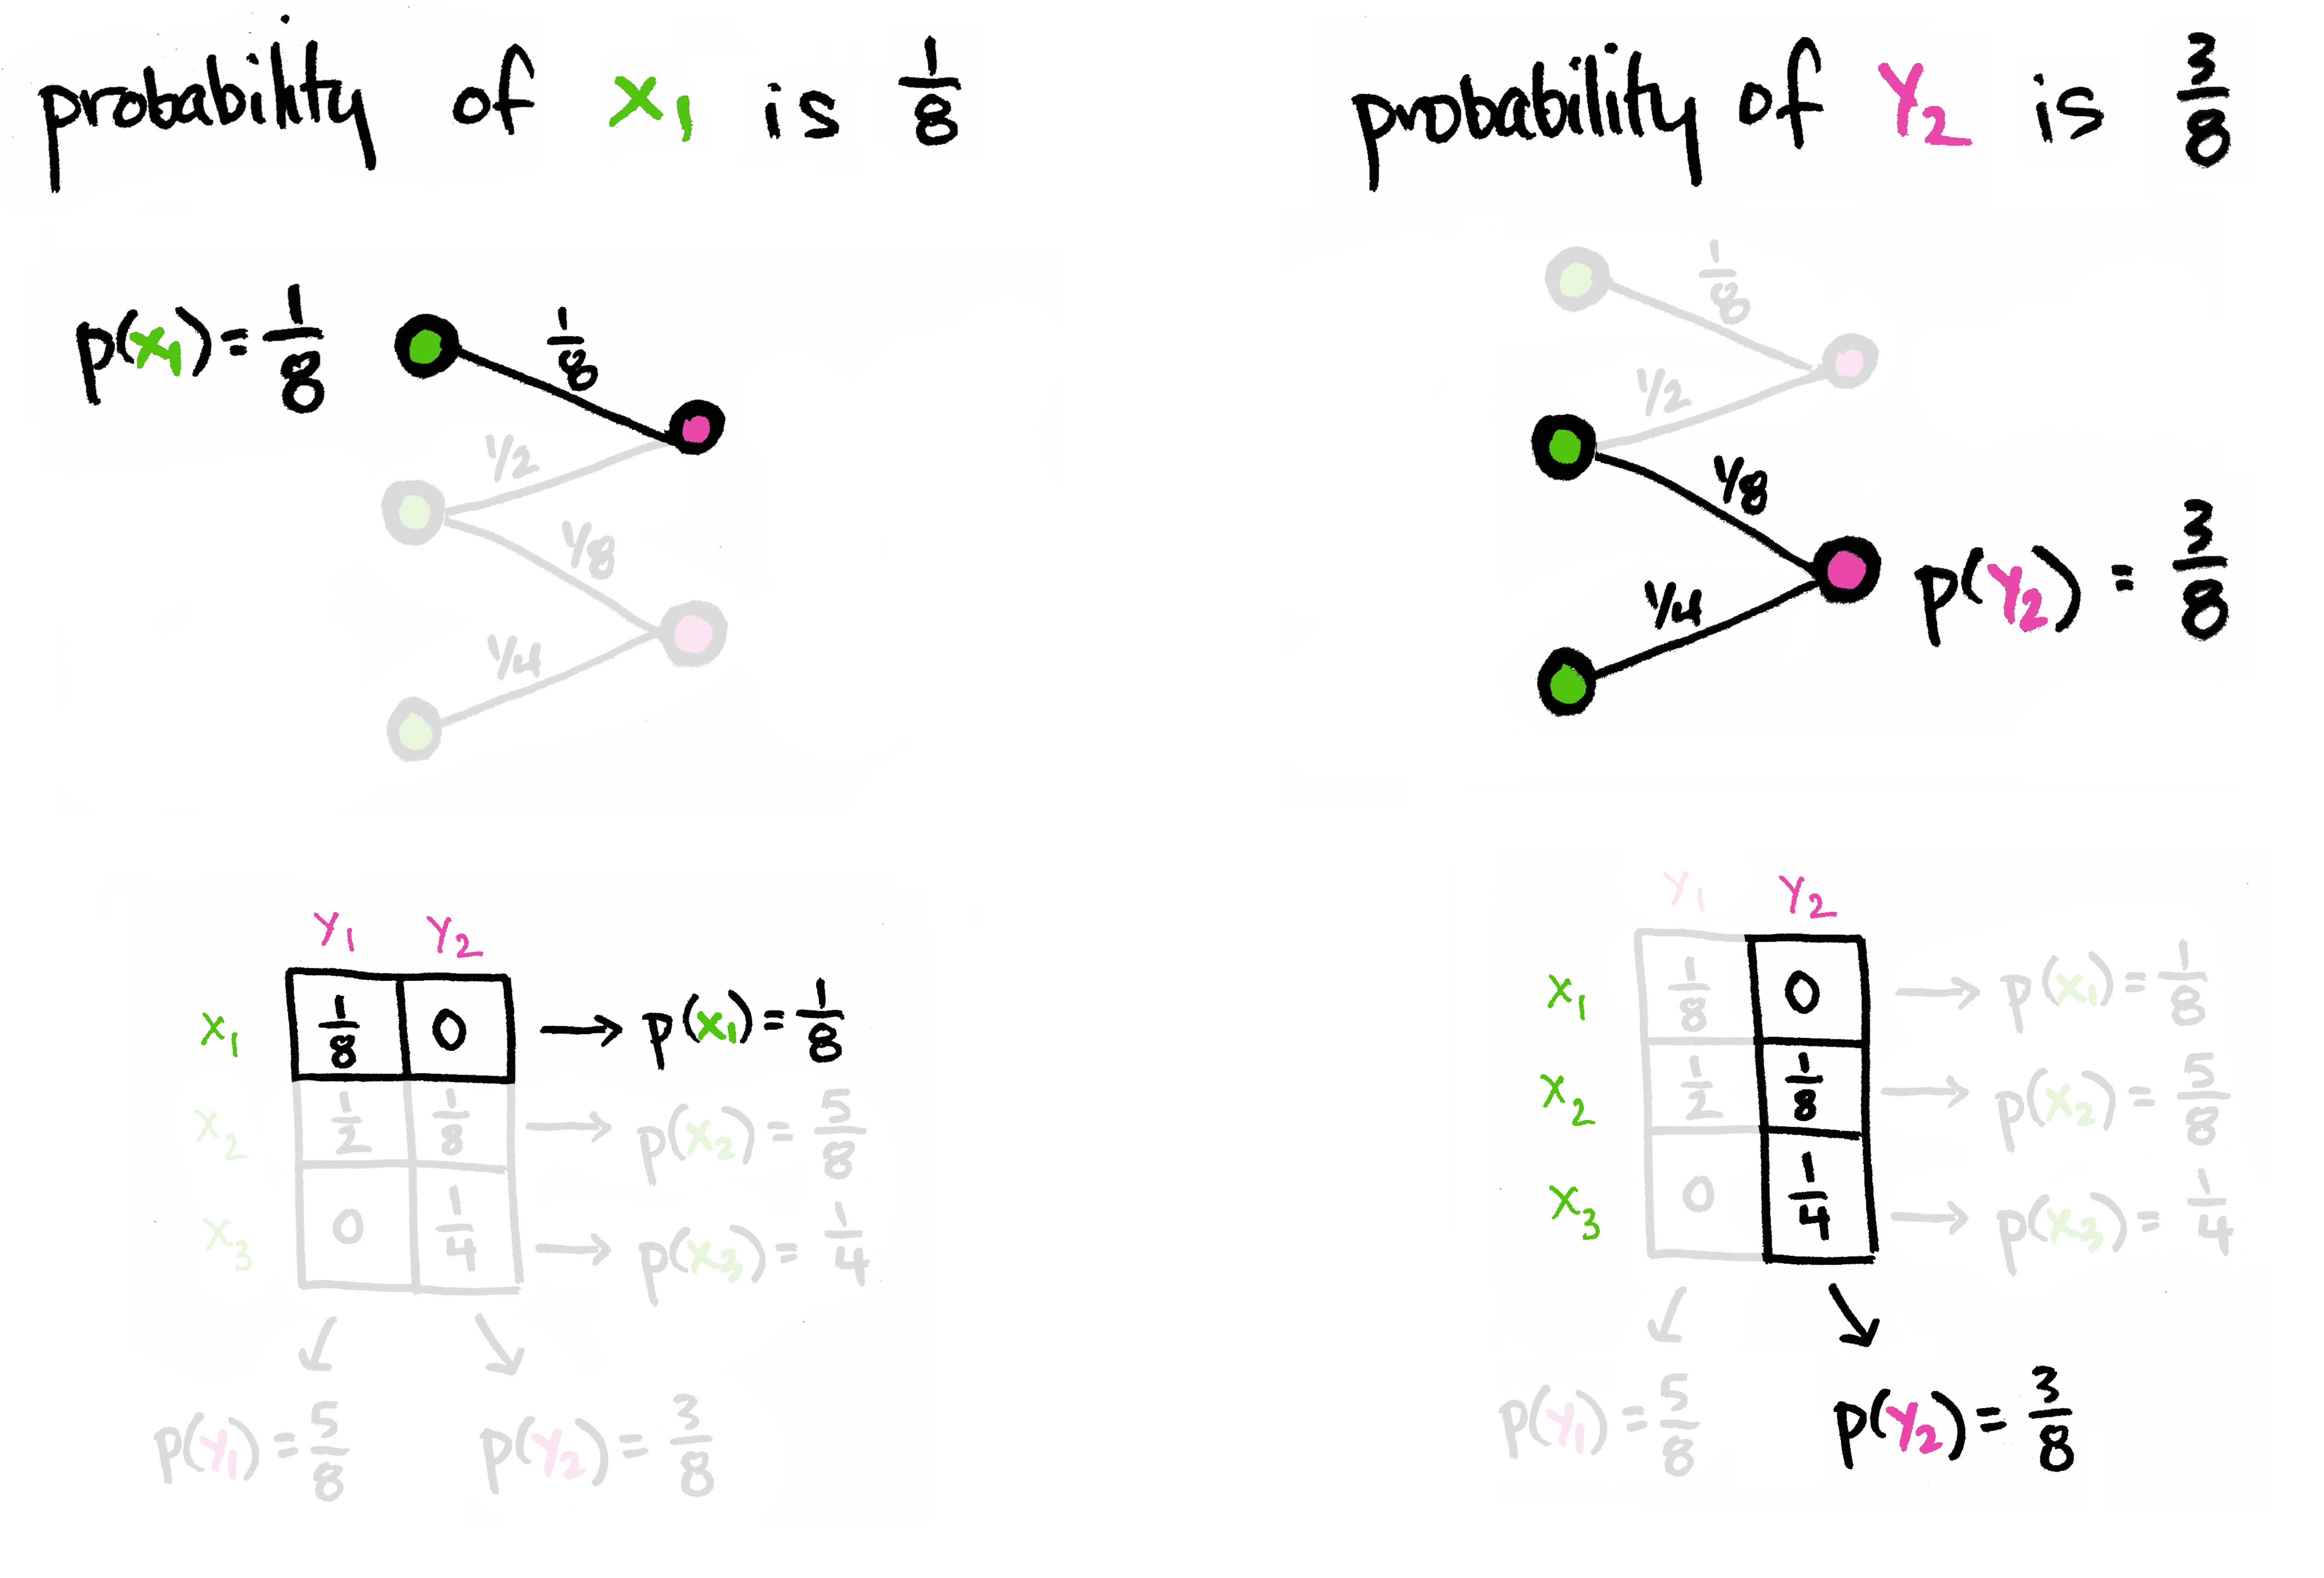 probability of x₁ is 1/8
p(x₁) = 1/8
1/8
1/2
1/8
1/4
y₁ y₂
x₁ 1/8 0 → p(x₁) = 1/8
x₂ 1/2 1/8 → p(x₂) = 5/8
x₃ 0 1/4 → p(x₃) = 1/4
p(y₁) = 5/8 p(y₂) = 3/8
probability of y₂ is 3/8
1/8
1/2
1/8
1/4
p(y₂) = 3/8
y₁ y₂
x₁ 1/8 0 → p(x₁) = 1/8
x₂ 1/2 1/8 → p(x₂) = 5/8
x₃ 0 1/4 → p(x₃) = 1/4
p(y₁) = 5/8 p(y₂) = 3/8